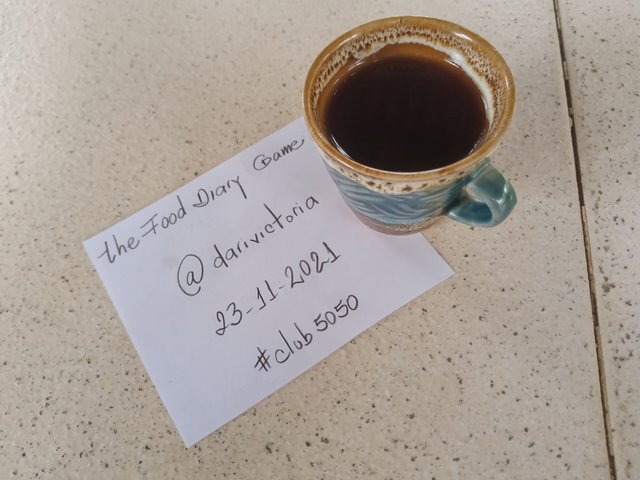 the Food Diary Game
@darivictoria
23-11-2021
#club5050